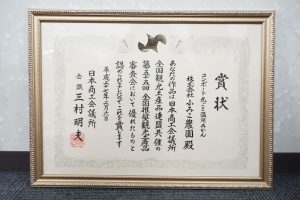 賞状
コンポート丸ごと温州みかん
株式会社ふみこ農園 殿
あなたの作品は日本商工会議所
全国観光土産品連盟共催の
第五十五回全国推奨観光土産品
審査会において優れたものと
認められましたのでこれを賞します
平成二十七年二月六日
日本商工会議所
会頭 三村明夫